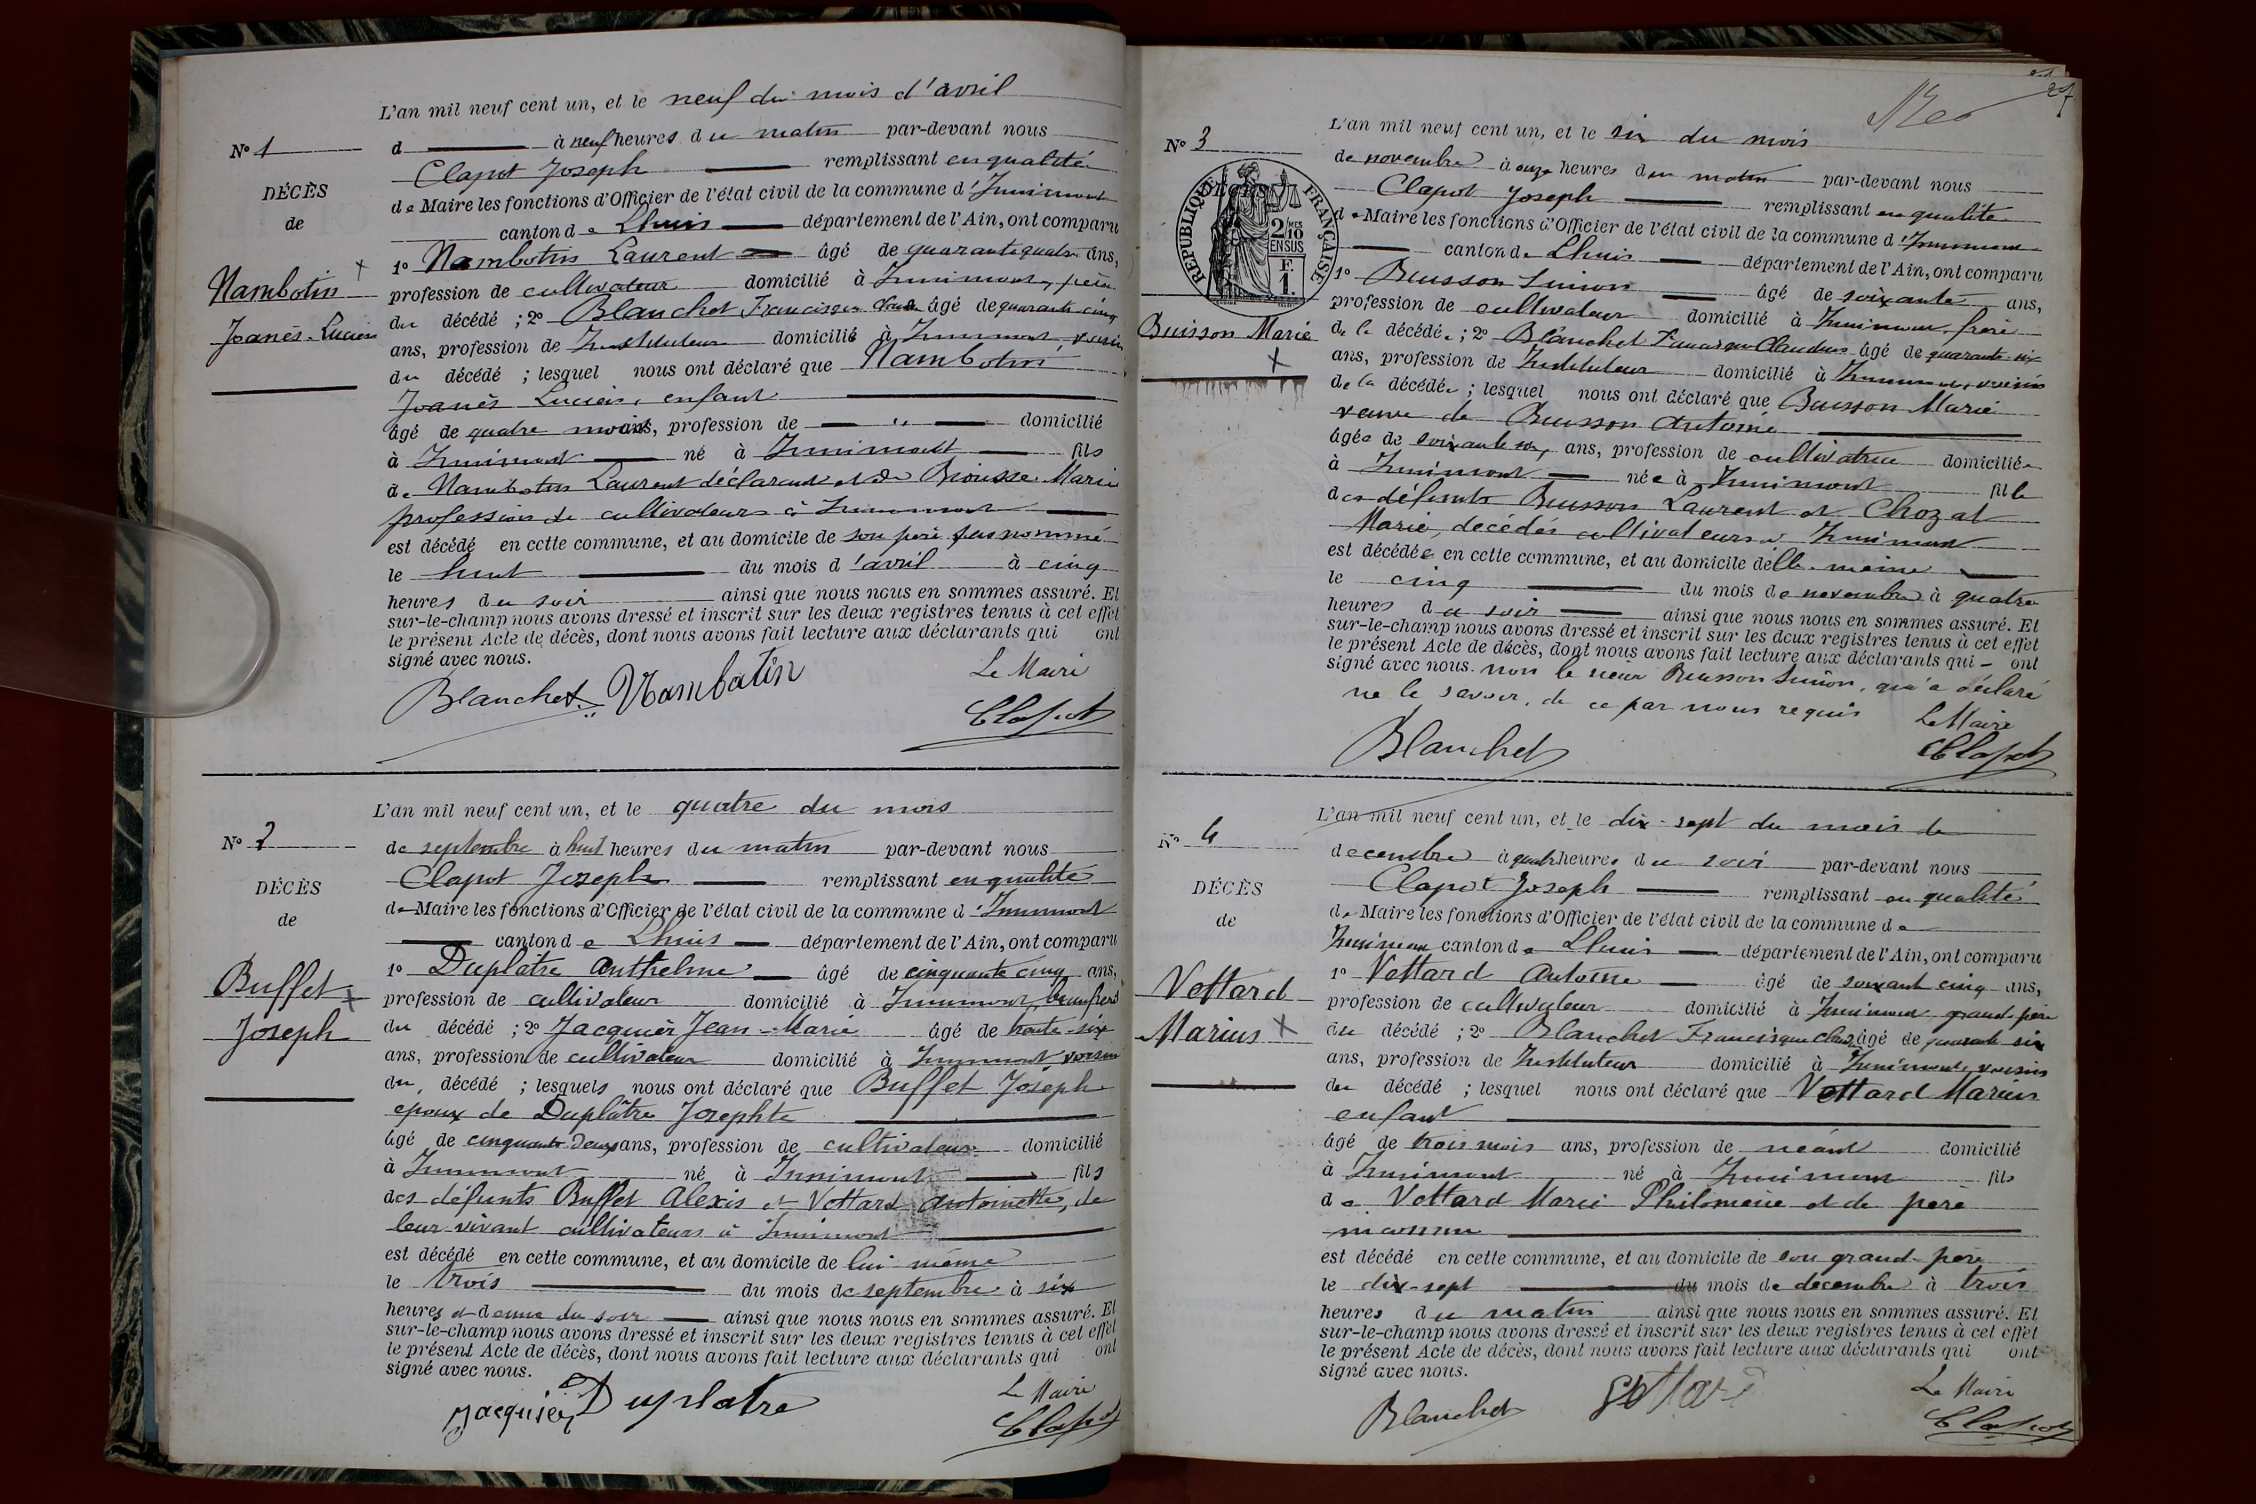 L'an mil neuf cent un, et le neuf du mois d'avril
d à neuf heures du matin par-devant nous
Clapot Joseph remplissant en qualité
de Maire les fonctions d'Officier de l'état civil de la commune d'Innimont
canton de Lhuis département de l'Ain, ont comparu
1o Nambotin Laurent âgé de quarante quatre ans,
profession de cultivateur domicilié à Innimont, père
du décédé ; 2o Blanchet Francisque âgé de quarante cinq
ans, profession de Instituteur domicilié à Innimont, voisin
du décédé ; lesquel nous ont déclaré que Nambotin
Joanès Lucien, enfant
âgé de quatre mois, profession de " domicilié
à Innimont né à Innimont fils
de Nambotin Laurent déclarant et de Brousse Marie
profession de cultivateurs à Innimont
est décédé en cette commune, et au domicile de son père susnommé
le huit du mois d'avril à cinq
heures du soir ainsi que nous nous en sommes assuré. Et
sur-le-champ nous avons dressé et inscrit sur les deux registres tenus à cet effet
le présent Acte de décès, dont nous avons fait lecture aux déclarants qui ont
signé avec nous.
Le Maire
Blanchet Nambotin
Clapot
No 1
DÉCÈS
de
Nambotin
Joanès-Lucien
L'an mil neuf cent un, et le quatre du mois
de septembre à huit heures du matin par-devant nous
Clapot Joseph remplissant en qualité
de Maire les fonctions d'Officier de l'état civil de la commune d'Innimont
canton de Lhuis département de l'Ain, ont comparu
1o Duplâtre Anthelme âgé de cinquante cinq ans,
profession de cultivateur domicilié à Innimont, beau frère
du décédé ; 2o Jacquier Jean-Marie âgé de trente-six
ans, profession de cultivateur domicilié à Innimont voisin
du décédé ; lesquels nous ont déclaré que Buffet Joseph
époux de Duplâtre Josephte
âgé de cinquante-deux ans, profession de cultivateur domicilié
à Innimont né à Innimont fils
des défunts Buffet Alexis et Vettard Antoinette, de
leur vivant cultivateurs à Innimont
est décédé en cette commune, et au domicile de lui même
le trois du mois de septembre à six
heures et demie du soir ainsi que nous nous en sommes assuré. Et
sur-le-champ nous avons dressé et inscrit sur les deux registres tenus à cet effet
le présent Acte de décès, dont nous avons fait lecture aux déclarants qui ont
signé avec nous.
Le Maire
Jacquier Duplatre
Clapot
No 2
DÉCÈS
de
Buffet
Joseph
27
L'an mil neuf cent un, et le six du mois
de novembre à onze heures du matin par-devant nous
Clapot Joseph remplissant en qualité
de Maire les fonctions d'Officier de l'état civil de la commune d'Innimont
canton de Lhuis département de l'Ain, ont comparu
1o Buisson Simon âgé de soixante ans,
profession de cultivateur domicilié à Innimont, frère
de la décédée ; 2o Blanchet Francisque Claudius âgé de quarante-six
ans, profession de Instituteur domicilié à Innimont, voisin
de la décédée ; lesquel nous ont déclaré que Buisson Marie
veuve de Buisson Antoine
âgée de ans, profession de cultivatrice domiciliée
à Innimont née à Innimont fille
des défunts Buisson Laurent et Chozat
Marie, décédés cultivateurs à Innimont
est décédée en cette commune, et au domicile d'elle-même
le cinq du mois de novembre à quatre
heures du soir ainsi que nous nous en sommes assuré. Et
sur-le-champ nous avons dressé et inscrit sur les deux registres tenus à cet effet
le présent Acte de décès, dont nous avons fait lecture aux déclarants qui – ont
signé avec nous. non le sieur Buisson Simon, qui a déclaré
ne le savoir, de ce par nous requis
Le Maire
Blanchet
Clapot
No 3
RÉPUBLIQUE FRANÇAISE
2/10 MES
EN SUS
F.
1.
Buisson Marie
L'an mil neuf cent un, et le dix-sept du mois de
décembre à quatre heures du soir par-devant nous
Clapot Joseph remplissant en qualité
de Maire les fonctions d'Officier de l'état civil de la commune de
Innimont canton de Lhuis département de l'Ain, ont comparu
1o Vettard Antoine âgé de soixant cinq ans,
profession de cultivateur domicilié à Innimont grand-père
du décédé ; 2o Blanchet Francisque Claud âgé de quarante six
ans, profession de Instituteur domicilié à Innimont, voisin
du décédé ; lesquel nous ont déclaré que Vettard Marius
enfant
âgé de trois mois ans, profession de néant domicilié
à Innimont né à Innimont fils
de Vettard Marie Philomène et de père
inconnu
est décédé en cette commune, et au domicile de son grand-père
le dix-sept du mois de décembre à trois
heures du matin ainsi que nous nous en sommes assuré. Et
sur-le-champ nous avons dressé et inscrit sur les deux registres tenus à cet effet
le présent Acte de décès, dont nous avons fait lecture aux déclarants qui ont
signé avec nous.
Le Maire
Blanchet Vettard
Clapot
No 4
DÉCÈS
de
Vettard
Marius